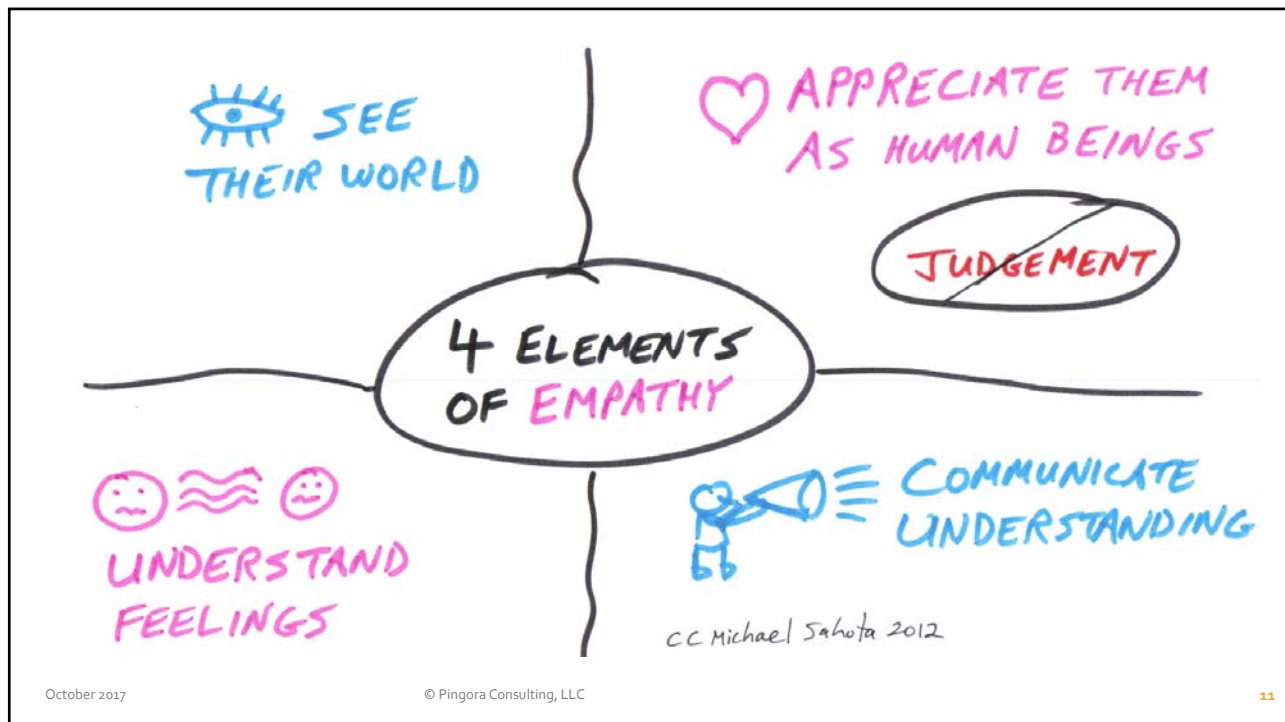 SEE
THEIR WORLD
APPRECIATE THEM
AS HUMAN BEINGS
JUDGEMENT
4 ELEMENTS
OF EMPATHY
UNDERSTAND
FEELINGS
COMMUNICATE
UNDERSTANDING
CC Michael Sahota 2012
October 2017
© Pingora Consulting, LLC
11